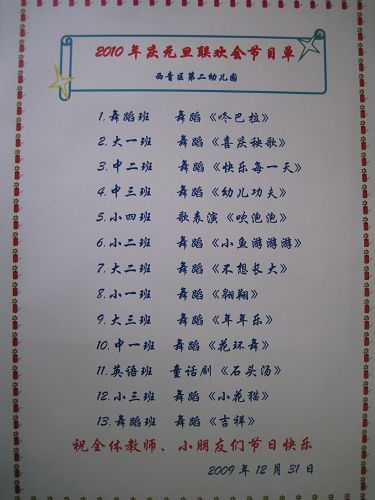 2010年庆元旦联欢会节目单
西青区第二幼儿园
1.舞蹈班 舞蹈《咚巴拉》
2.大一班 舞蹈《喜庆秧歌》
3.中二班 舞蹈《快乐每一天》
4.中三班 舞蹈《幼儿功夫》
5.小四班 歌表演《吹泡泡》
6.小二班 舞蹈《小鱼游游游》
7.大二班 舞蹈《不想长大》
8.小一班 舞蹈《翱翔》
9.大三班 舞蹈《年年乐》
10.中一班 舞蹈《花环舞》
11.英语班 童话剧《石头汤》
12.小三班 舞蹈《小花猫》
13.舞蹈班 舞蹈《吉祥》
祝全体教师、小朋友们节日快乐
2009年12月31日